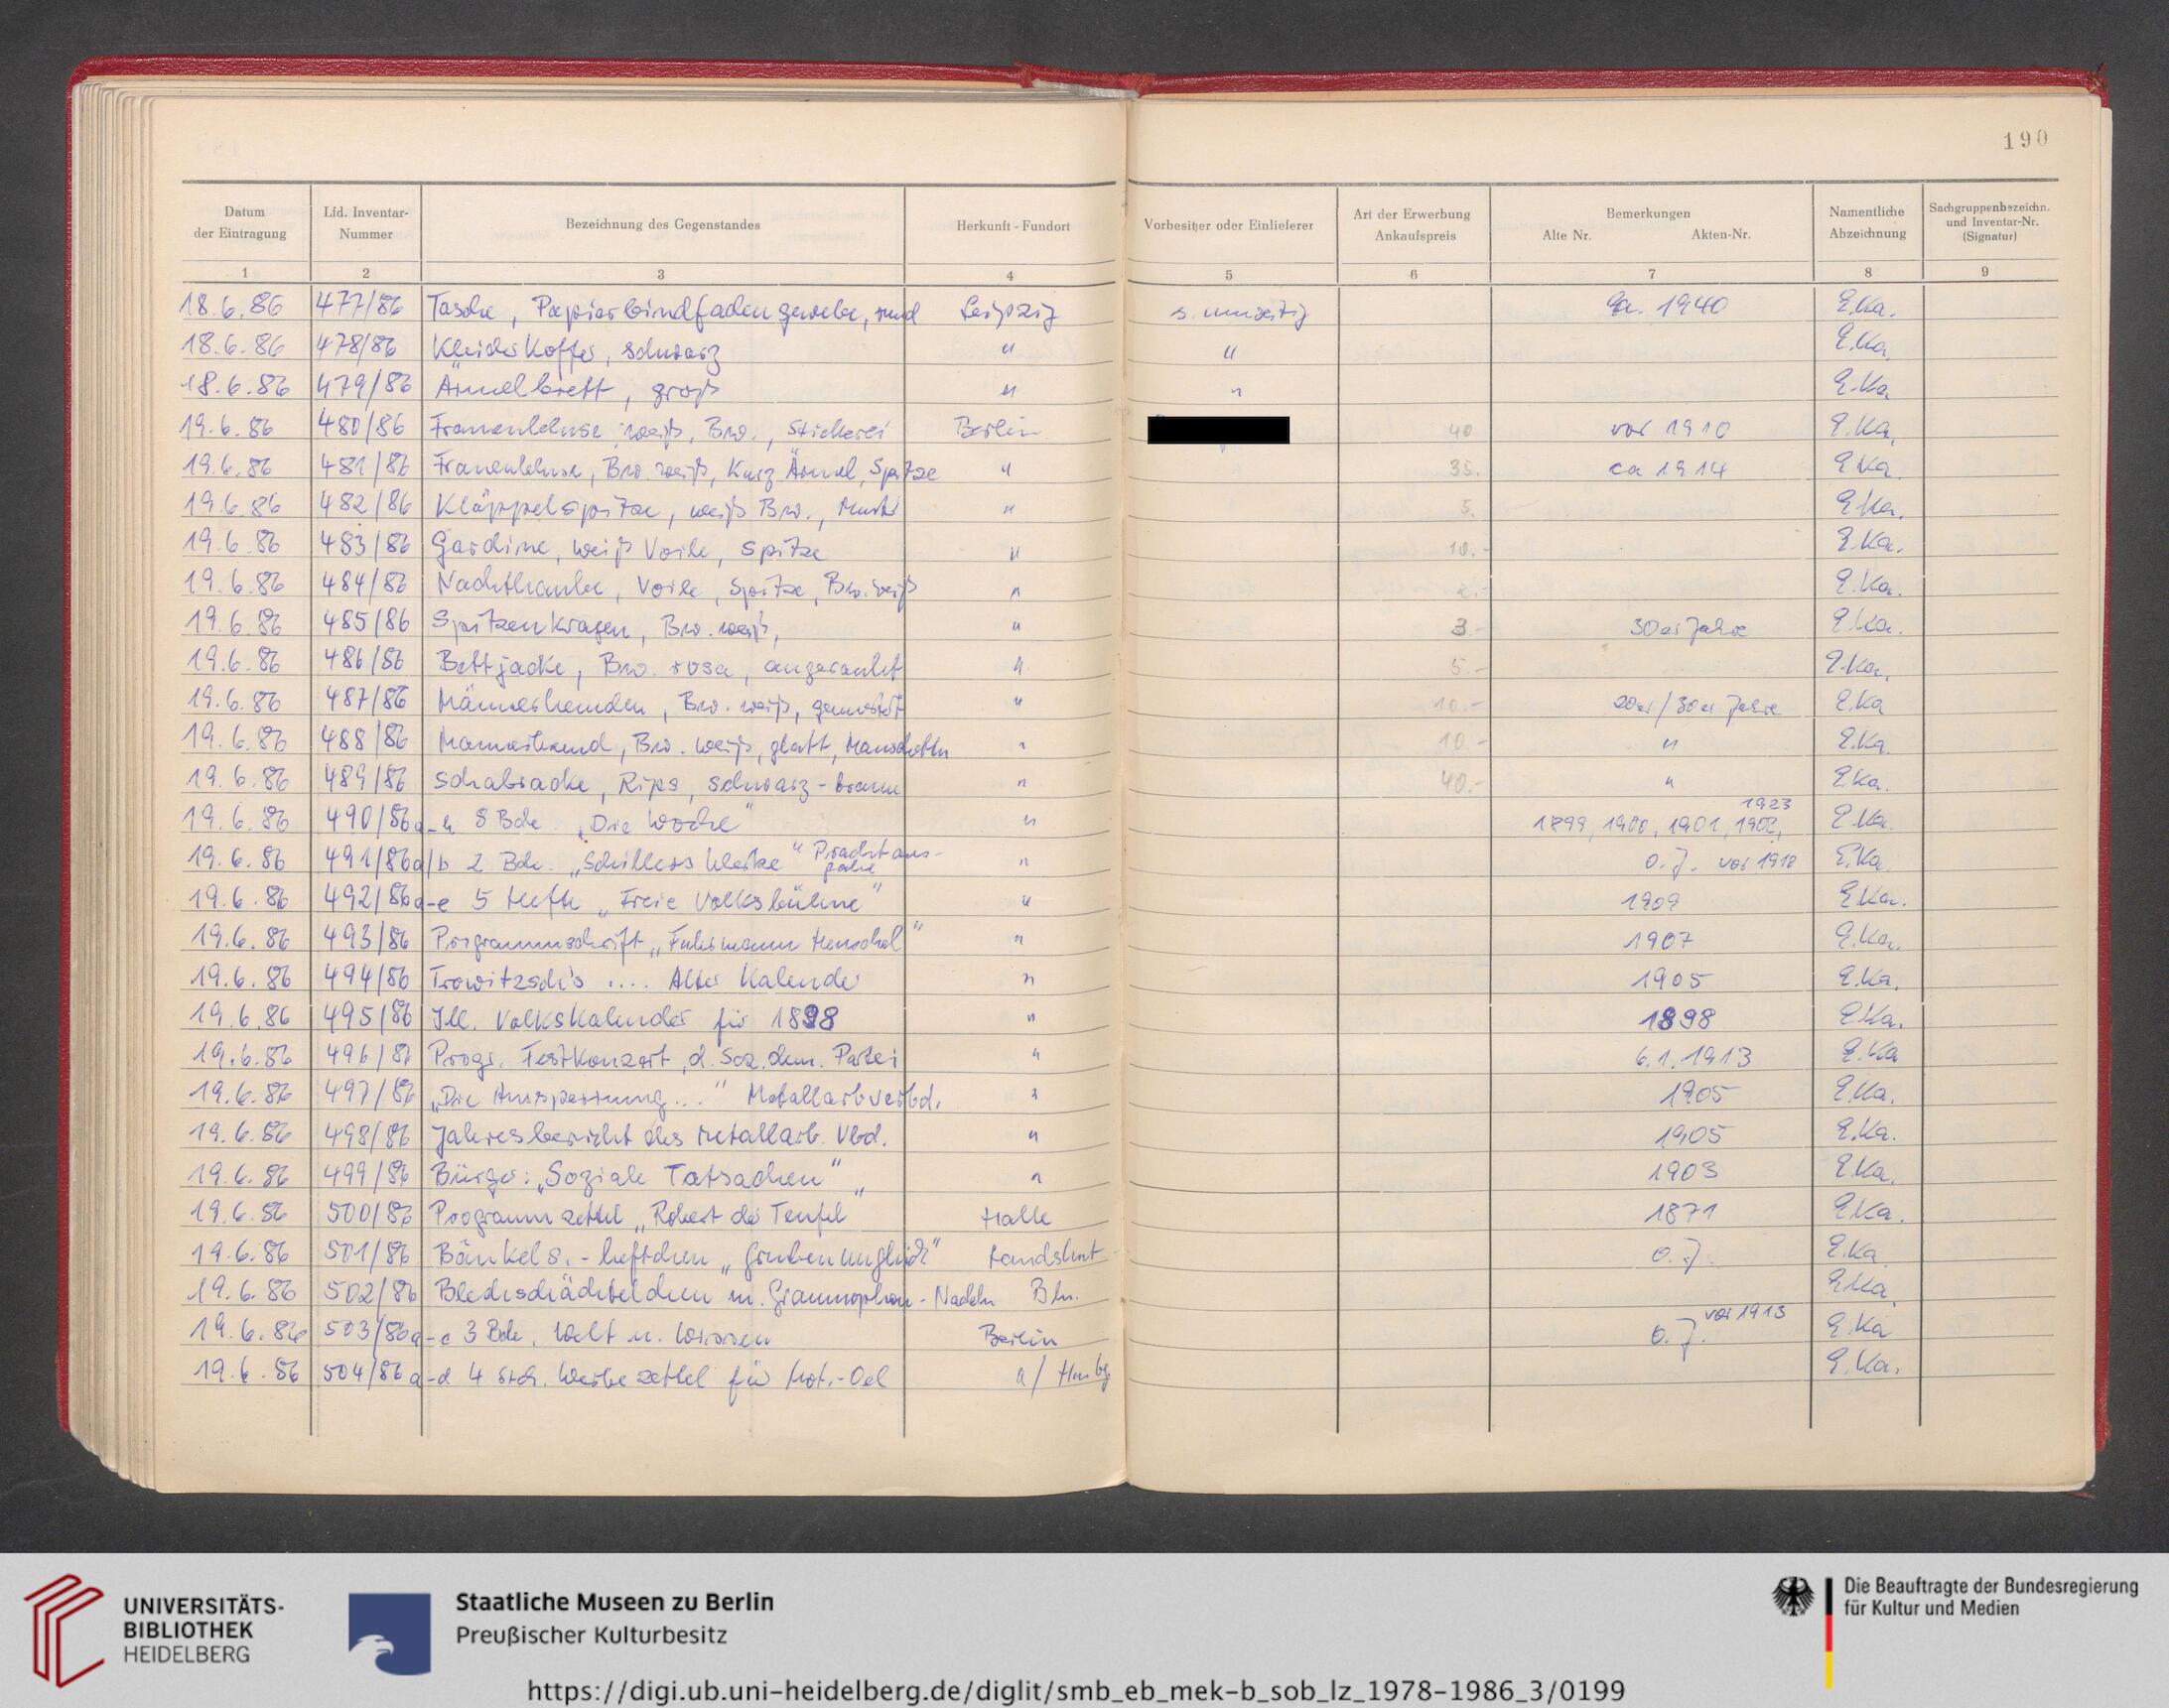 190
Datum der Eintragung | Lfd. Inventar-Nummer | Bezeichnung des Gegenstandes | Herkunft - Fundort | Vorbesitzer oder Einlieferer | Art der Erwerbung Ankaufspreis | Bemerkungen Alte Nr. Akten-Nr. | Namentliche Abzeichnung | Sachgruppenbezeichn. und Inventar-Nr. (Signatur)
1 2 3 4 5 6 7 8 9
18.6.86 477/86 Tasche, Papierbindfadengewebe, rund Leipzig s. umseitig ca. 1940 E.Ka.
18.6.86 478/86 Kleiderkoffer, schwarz " " E.Ka.
18.6.86 479/86 Ärmelbrett, groß " " E.Ka.
19.6.86 480/86 Frauenbluse weiß, Bw., Stickerei Berlin 40 vor 1910 E.Ka.
19.6.86 481/86 Frauenbluse, Bw. weiß, Kurz Ärmel, Spitze " 35.- ca 1914 E.Ka.
19.6.86 482/86 Klöppelspitze, weiß Bw., Muster " 5. E.Ka.
19.6.86 483/86 Gardine, weiß Voile, Spitze " 10.- E.Ka.
19.6.86 484/86 Nachthaube, Voile, Spitze, Bw. weiß " 2.- E.Ka.
19.6.86 485/86 Spitzenkragen, Bw. weiß, " 3.- 30er Jahre E.Ka.
19.6.86 486/86 Bettjacke, Bw. rosa, angerauht " 5.- E.Ka.
19.6.86 487/86 Männerhemden, Bw. weiß, gemustert " 10.- 20er/30er Jahre E.Ka
19.6.86 488/86 Männerhemd, Bw. weiß, glatt, Manschetten " 10.- " E.Ka.
19.6.86 489/86 Schabracke, Rips, schwarz-braun " 40.- " E.Ka.
19.6.86 490/86a-h 8 Bde. „Die Woche" " 1899, 1900, 1901, 1902, 1923 E.Ka.
19.6.86 491/86a/b 2 Bde. „Schillers Werke" Prachtausgabe " o.J. vor 1918 E.Ka.
19.6.86 492/86a-e 5 Hefte „Freie Volksbühne" " 1909 E.Ka.
19.6.86 493/86 Programmschrift „Fuhrmann Henschel" " 1907 E.Ka.
19.6.86 494/86 Trowitzsch's .... Alter Kalender " 1905 E.Ka.
19.6.86 495/86 Ill. Volkskalender für 1898 " 1898 E.Ka.
19.6.86 496/86 Progr. Festkonzert, d. Soz.dem. Partei " 6.1.1913 E.Ka
19.6.86 497/86 „Die Aussperrung..." Metallarbverbd. " 1905 E.Ka.
19.6.86 498/86 Jahresbericht des Metallarb. Vbd. " 1905 E.Ka.
19.6.86 499/86 Bürger: „Soziale Tatsachen" " 1903 E.Ka.
19.6.86 500/86 Programmzettel „Robert der Teufel" Halle 1871 E.Ka.
19.6.86 501/86 Bänkels.-heftchen „Grubenunglück" Landshut o.J. E.Ka
19.6.86 502/86 Blechschächtelchen m. Grammophon-Nadeln Bln. E.Ka.
19.6.86 503/86a-c 3 Bde. Welt u. Wissen Berlin o.J. vor 1913 E.Ka
19.6.86 504/86a-d 4 Stck. Werbezettel für Mot.-Oel a/ Hmbg E.Ka.
UNIVERSITÄTS-
BIBLIOTHEK
HEIDELBERG
Staatliche Museen zu Berlin
Preußischer Kulturbesitz
Die Beauftragte der Bundesregierung
für Kultur und Medien
https://digi.ub.uni-heidelberg.de/diglit/smb_eb_mek-b_sob_lz_1978-1986_3/0199